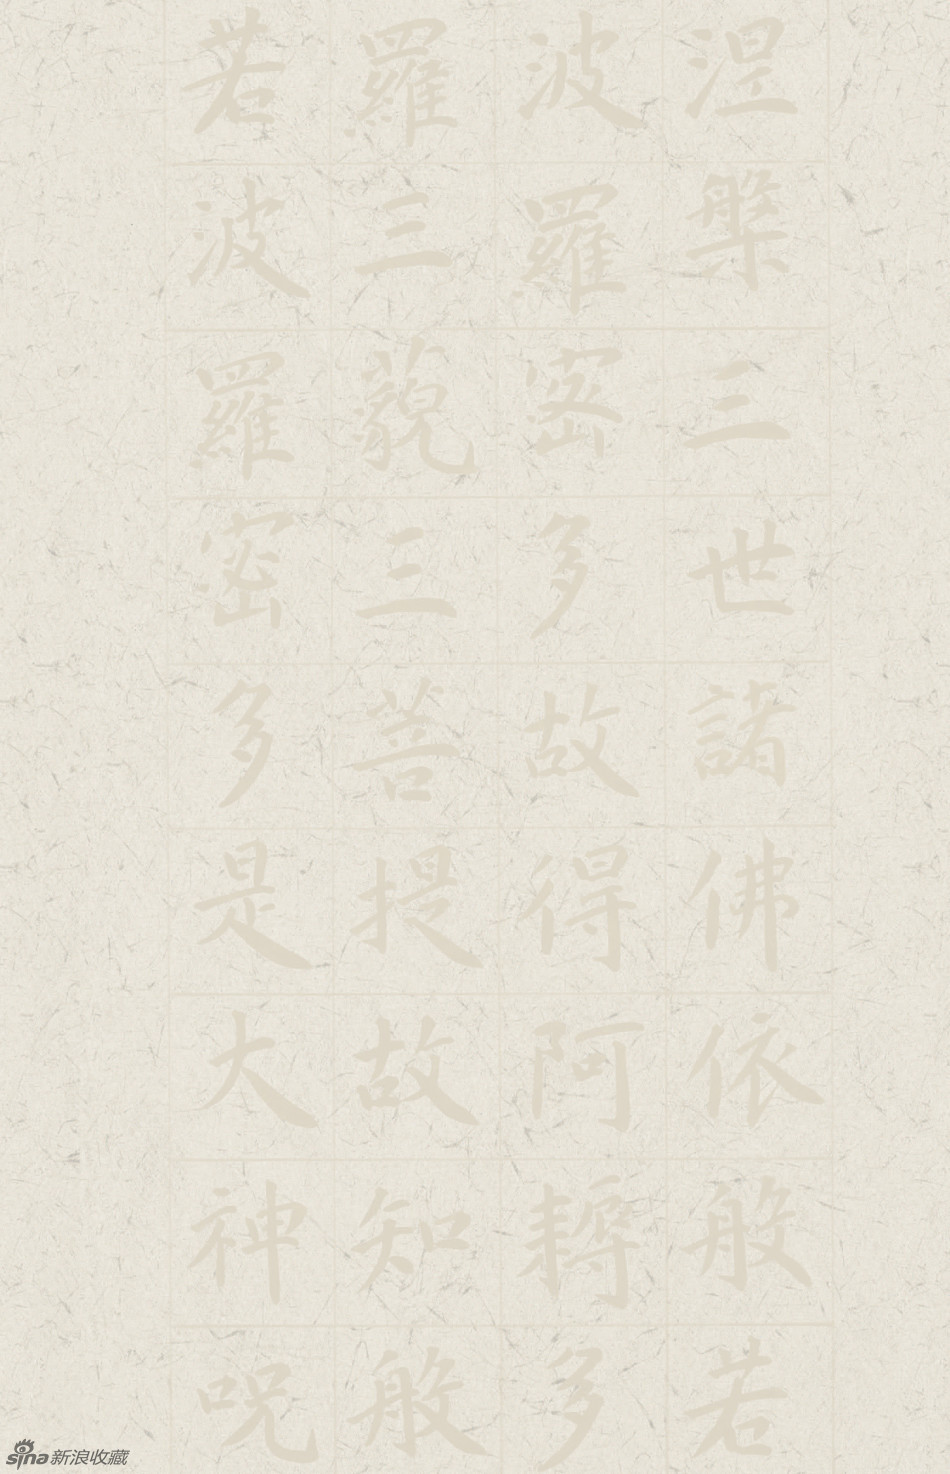 涅槃三世諸佛依般若
波羅蜜多故得阿耨多
羅三藐三菩提故知般
若波羅蜜多是大神咒
sina新浪收藏